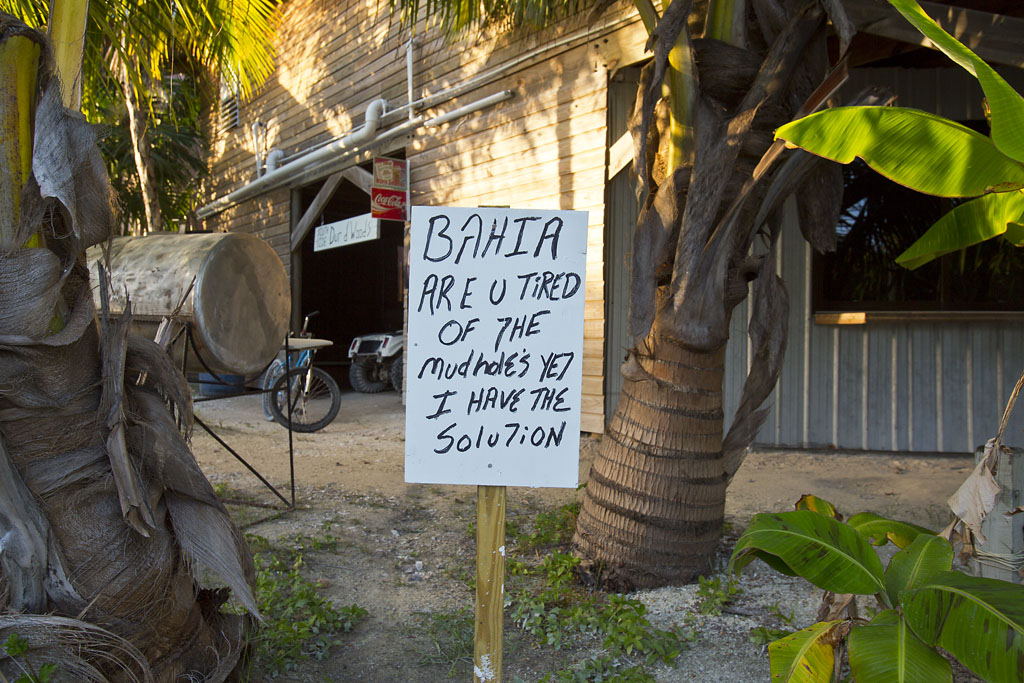 Coca-Cola
Dur d Woods
BAHIA
ARE U TiRED
OF THE
mudhole's YET
I HAVE THE
SOLUTiON